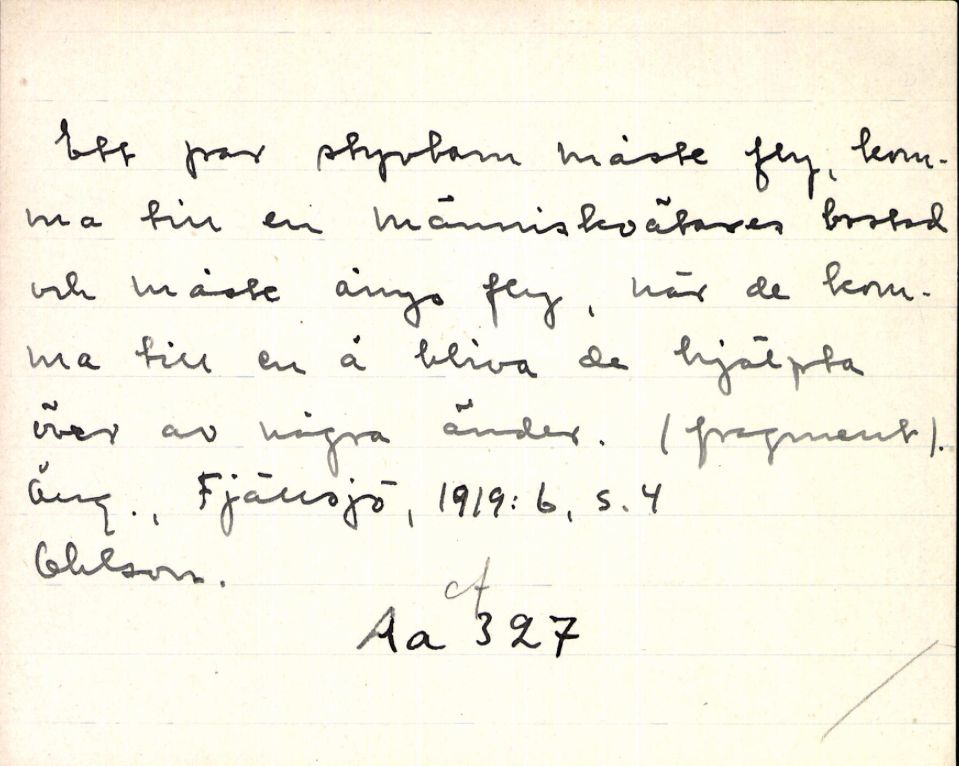 Ett par styvbarn måste fly, kom-
ma till en människoätares bostad
och måste ånyo fly, när de kom-
ma till en å bliva de hjälpta
över av några änder. (fragment).
Ång., Fjällsjö, 1919: 6, s. 4
Ohlson.
cf
Aa 327